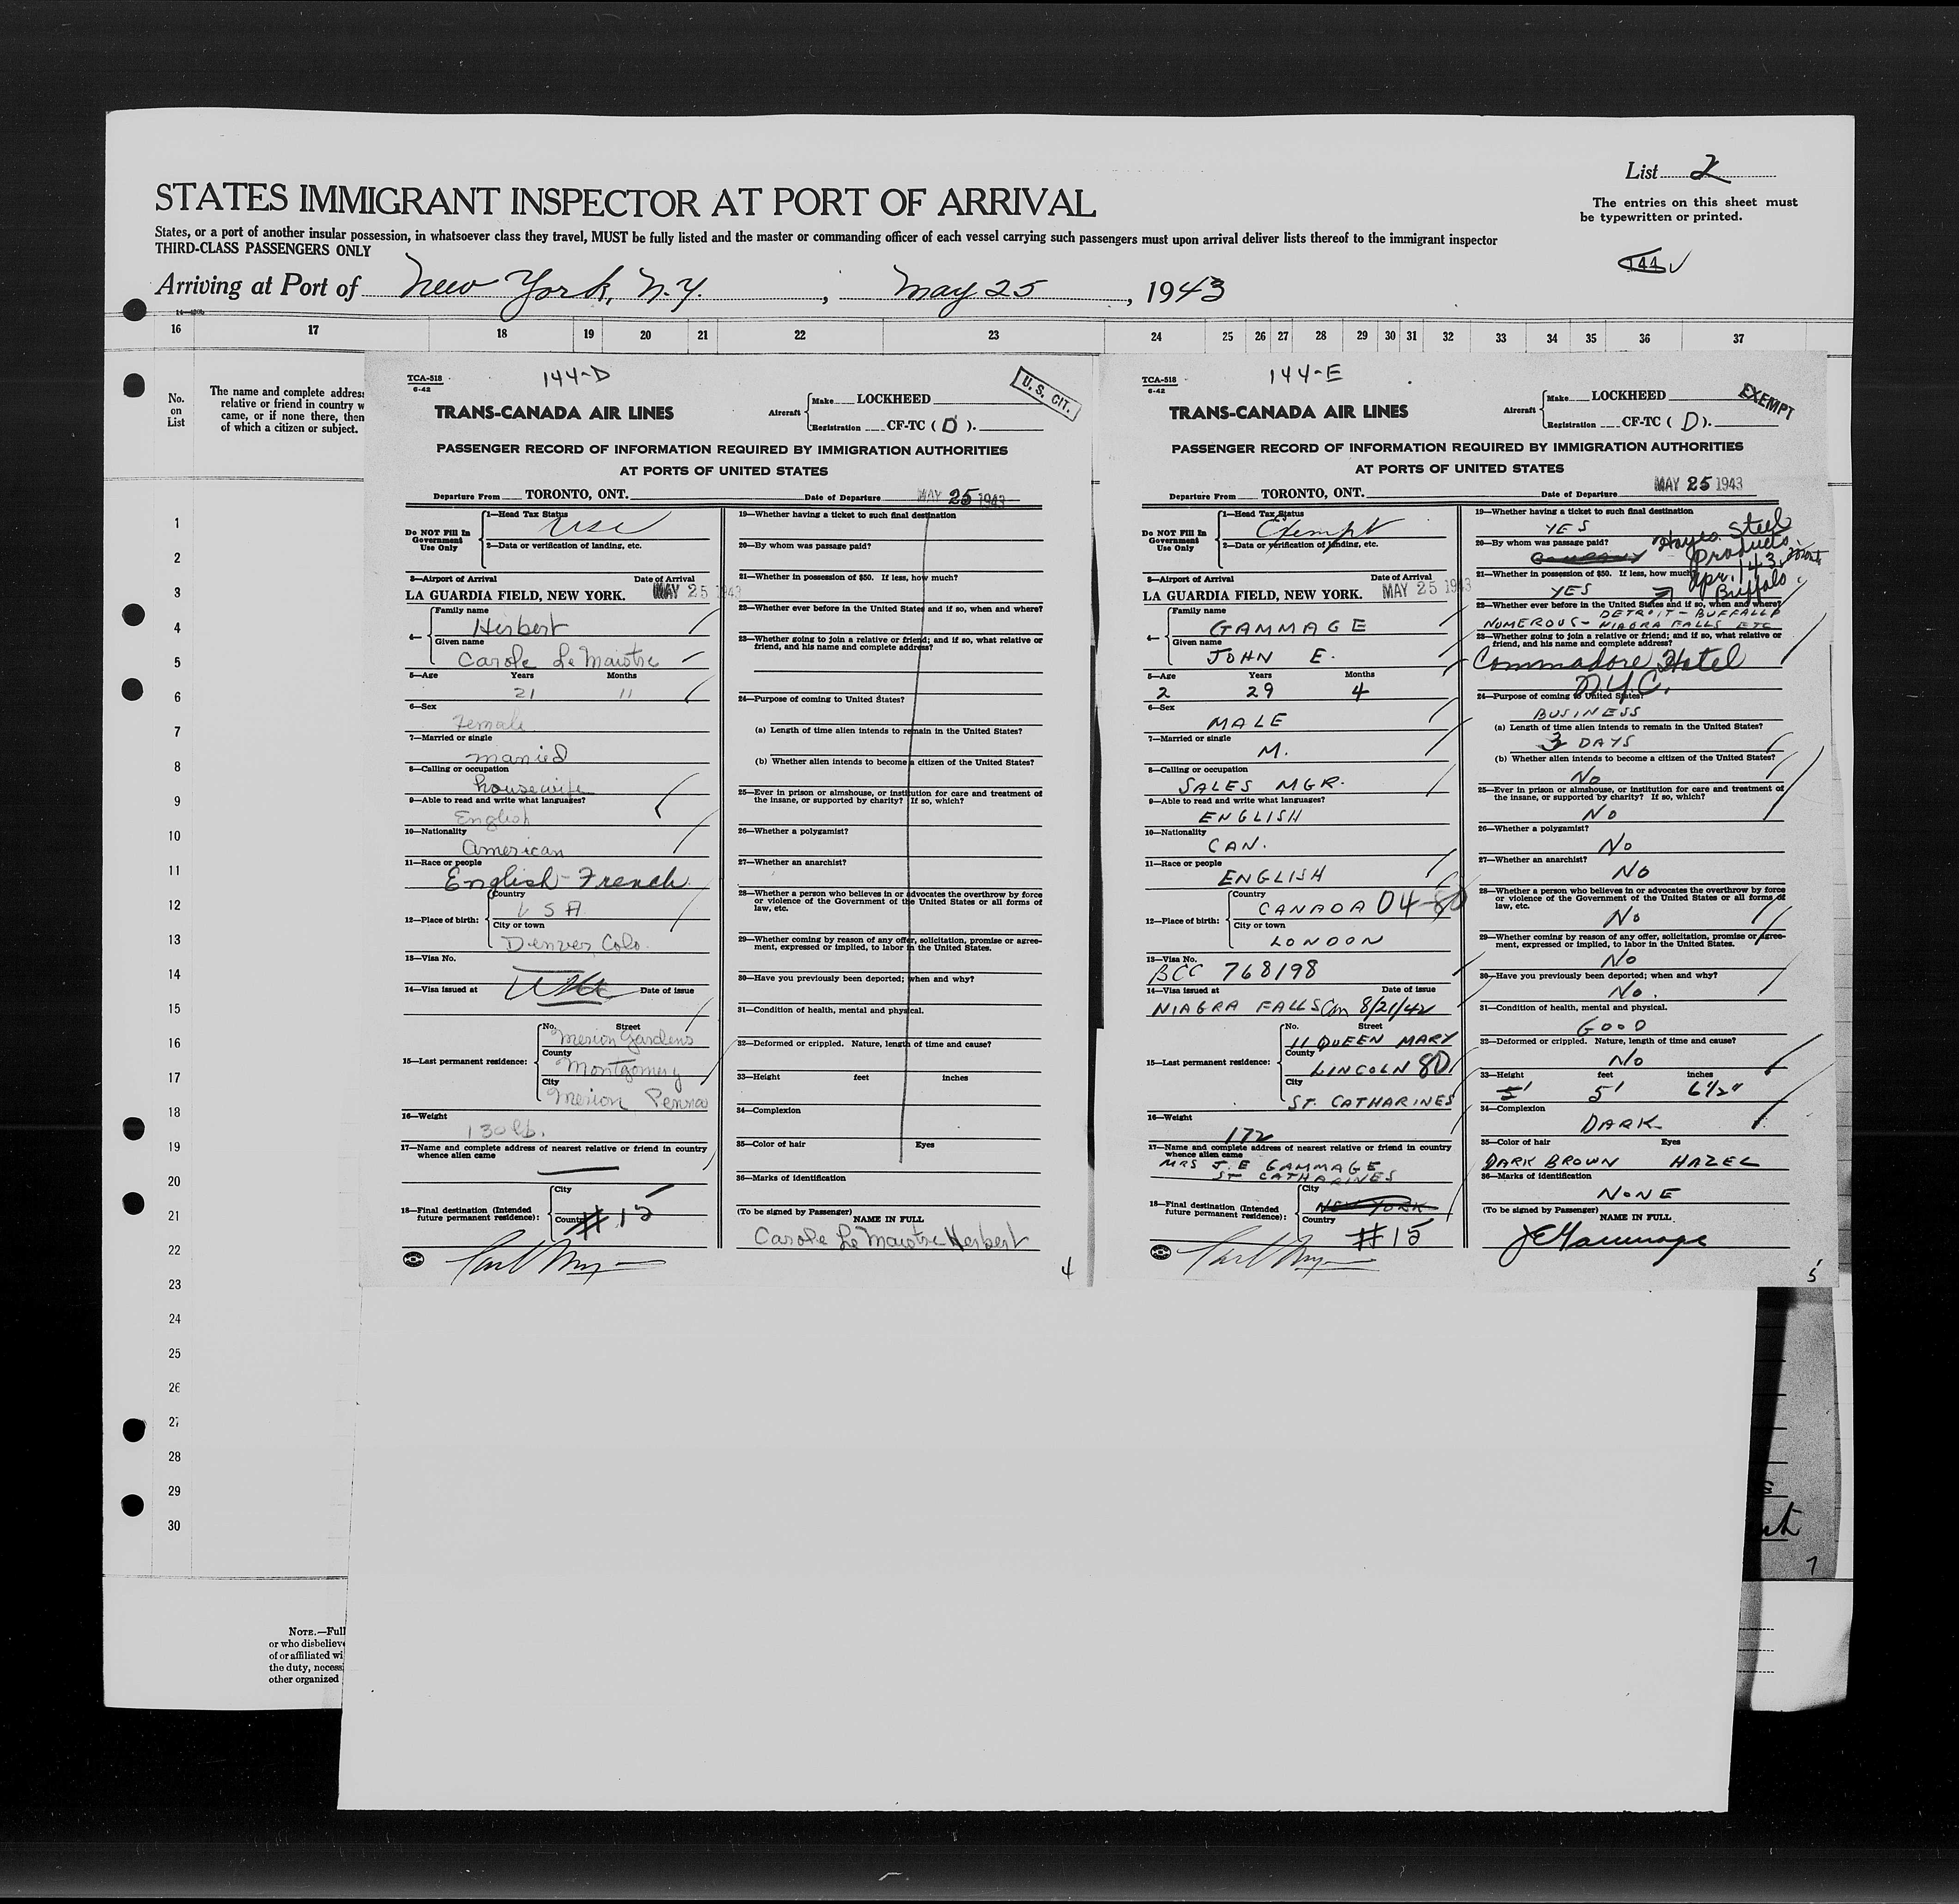 List 2
STATES IMMIGRANT INSPECTOR AT PORT OF ARRIVAL
The entries on this sheet must
be typewritten or printed.
States, or a port of another insular possession, in whatsoever class they travel, MUST be fully listed and the master or commanding officer of each vessel carrying such passengers must upon arrival deliver lists thereof to the immigrant inspector
THIRD-CLASS PASSENGERS ONLY
144
Arriving at Port of New York, N.Y., May 25, 1943
16 17 18 19 20 21 22 23 24 25 26 27 28 29 30 31 32 33 34 35 36 37
No.
on
List
The name and complete address
relative or friend in country w
came, or if none there, then
of which a citizen or subject.
1
2
3
4
5
6
7
8
9
10
11
12
13
14
15
16
17
18
19
20
21
22
23
24
25
26
27
28
29
30
NOTE.—Full
or who disbelieve
of or affiliated wi
the duty, necess
other organized
TCA-518
6-42
144-D
U. S. CIT.
TRANS-CANADA AIR LINES
Aircraft
Make LOCKHEED
Registration CF-TC ( D ).
PASSENGER RECORD OF INFORMATION REQUIRED BY IMMIGRATION AUTHORITIES
AT PORTS OF UNITED STATES
Departure From TORONTO, ONT. Date of Departure MAY 25 1943
Do NOT Fill In
Government
Use Only
1—Head Tax Status
USC
2—Data or verification of landing, etc.
3—Airport of Arrival Date of Arrival
LA GUARDIA FIELD, NEW YORK. MAY 25 1943
4—
Family name
Herbert
Given name
Carole Le Maistre
5—Age Years Months
21 11
6—Sex
Female
7—Married or single
married
8—Calling or occupation
housewife
9—Able to read and write what languages?
English
10—Nationality
American
11—Race or people
English-French
12—Place of birth:
Country
USA
City or town
Denver Colo.
13—Visa No.
14—Visa issued at Date of issue
15—Last permanent residence:
No. Street
Merion Gardens
County
Montgomery
City
Merion Penna
16—Weight
130 lb.
17—Name and complete address of nearest relative or friend in country
whence alien came
18—Final destination (Intended
future permanent residence):
City
Country
#15
19—Whether having a ticket to such final destination
20—By whom was passage paid?
21—Whether in possession of $50. If less, how much?
22—Whether ever before in the United States and if so, when and where?
23—Whether going to join a relative or friend; and if so, what relative or
friend, and his name and complete address?
24—Purpose of coming to United States?
(a) Length of time alien intends to remain in the United States?
(b) Whether alien intends to become a citizen of the United States?
25—Ever in prison or almshouse, or institution for care and treatment of
the insane, or supported by charity? If so, which?
26—Whether a polygamist?
27—Whether an anarchist?
28—Whether a person who believes in or advocates the overthrow by force
or violence of the Government of the United States or all forms of
law, etc.
29—Whether coming by reason of any offer, solicitation, promise or agree-
ment, expressed or implied, to labor in the United States.
30—Have you previously been deported; when and why?
31—Condition of health, mental and physical.
32—Deformed or crippled. Nature, length of time and cause?
33—Height feet inches
34—Complexion
35—Color of hair Eyes
36—Marks of identification
(To be signed by Passenger)
NAME IN FULL
Carole Le Maistre Herbert
4
TCA-518
6-42
144-E
EXEMPT
TRANS-CANADA AIR LINES
Aircraft
Make LOCKHEED
Registration CF-TC ( D ).
PASSENGER RECORD OF INFORMATION REQUIRED BY IMMIGRATION AUTHORITIES
AT PORTS OF UNITED STATES
Departure From TORONTO, ONT. Date of Departure MAY 25 1943
Do NOT Fill In
Government
Use Only
1—Head Tax Status
Exempt
2—Data or verification of landing, etc.
3—Airport of Arrival Date of Arrival
LA GUARDIA FIELD, NEW YORK. MAY 25 1943
4—
Family name
GAMMAGE
Given name
JOHN E.
5—Age Years Months
2 29 4
6—Sex
MALE
7—Married or single
M.
8—Calling or occupation
SALES MGR.
9—Able to read and write what languages?
ENGLISH
10—Nationality
CAN.
11—Race or people
ENGLISH
12—Place of birth:
Country
CANADA 04-80
City or town
LONDON
13—Visa No.
BCC 768198
14—Visa issued at Date of issue
NIAGRA FALLS Can 8/21/42
15—Last permanent residence:
No. Street
11 QUEEN MARY
County
LINCOLN 80
City
ST. CATHARINES
16—Weight
172
17—Name and complete address of nearest relative or friend in country
whence alien came
MRS J. E GAMMAGE
ST CATHARINES
18—Final destination (Intended
future permanent residence):
City
NEW YORK
Country
#15
19—Whether having a ticket to such final destination
YES
20—By whom was passage paid?
COMPANY Hayes Steel
Products
21—Whether in possession of $50. If less, how much?
YES
Apr. 1 43
Buffalo
22—Whether ever before in the United States and if so, when and where?
DETROIT - BUFFALLO
NUMEROUS - NIAGRA FALLS ETC
23—Whether going to join a relative or friend; and if so, what relative or
friend, and his name and complete address?
Commadore Hotel
N.Y.C.
24—Purpose of coming to United States?
BUSINESS
(a) Length of time alien intends to remain in the United States?
3 DAYS
(b) Whether alien intends to become a citizen of the United States?
No
25—Ever in prison or almshouse, or institution for care and treatment of
the insane, or supported by charity? If so, which?
No
26—Whether a polygamist?
No
27—Whether an anarchist?
No
28—Whether a person who believes in or advocates the overthrow by force
or violence of the Government of the United States or all forms of
law, etc.
No
29—Whether coming by reason of any offer, solicitation, promise or agree-
ment, expressed or implied, to labor in the United States.
No
30—Have you previously been deported; when and why?
No.
31—Condition of health, mental and physical.
GOOD
32—Deformed or crippled. Nature, length of time and cause?
No
33—Height feet inches
5' 5' 6 1/2"
34—Complexion
DARK
35—Color of hair Eyes
DARK BROWN HAZEL
36—Marks of identification
NONE
(To be signed by Passenger)
NAME IN FULL
JEGammage
5
7